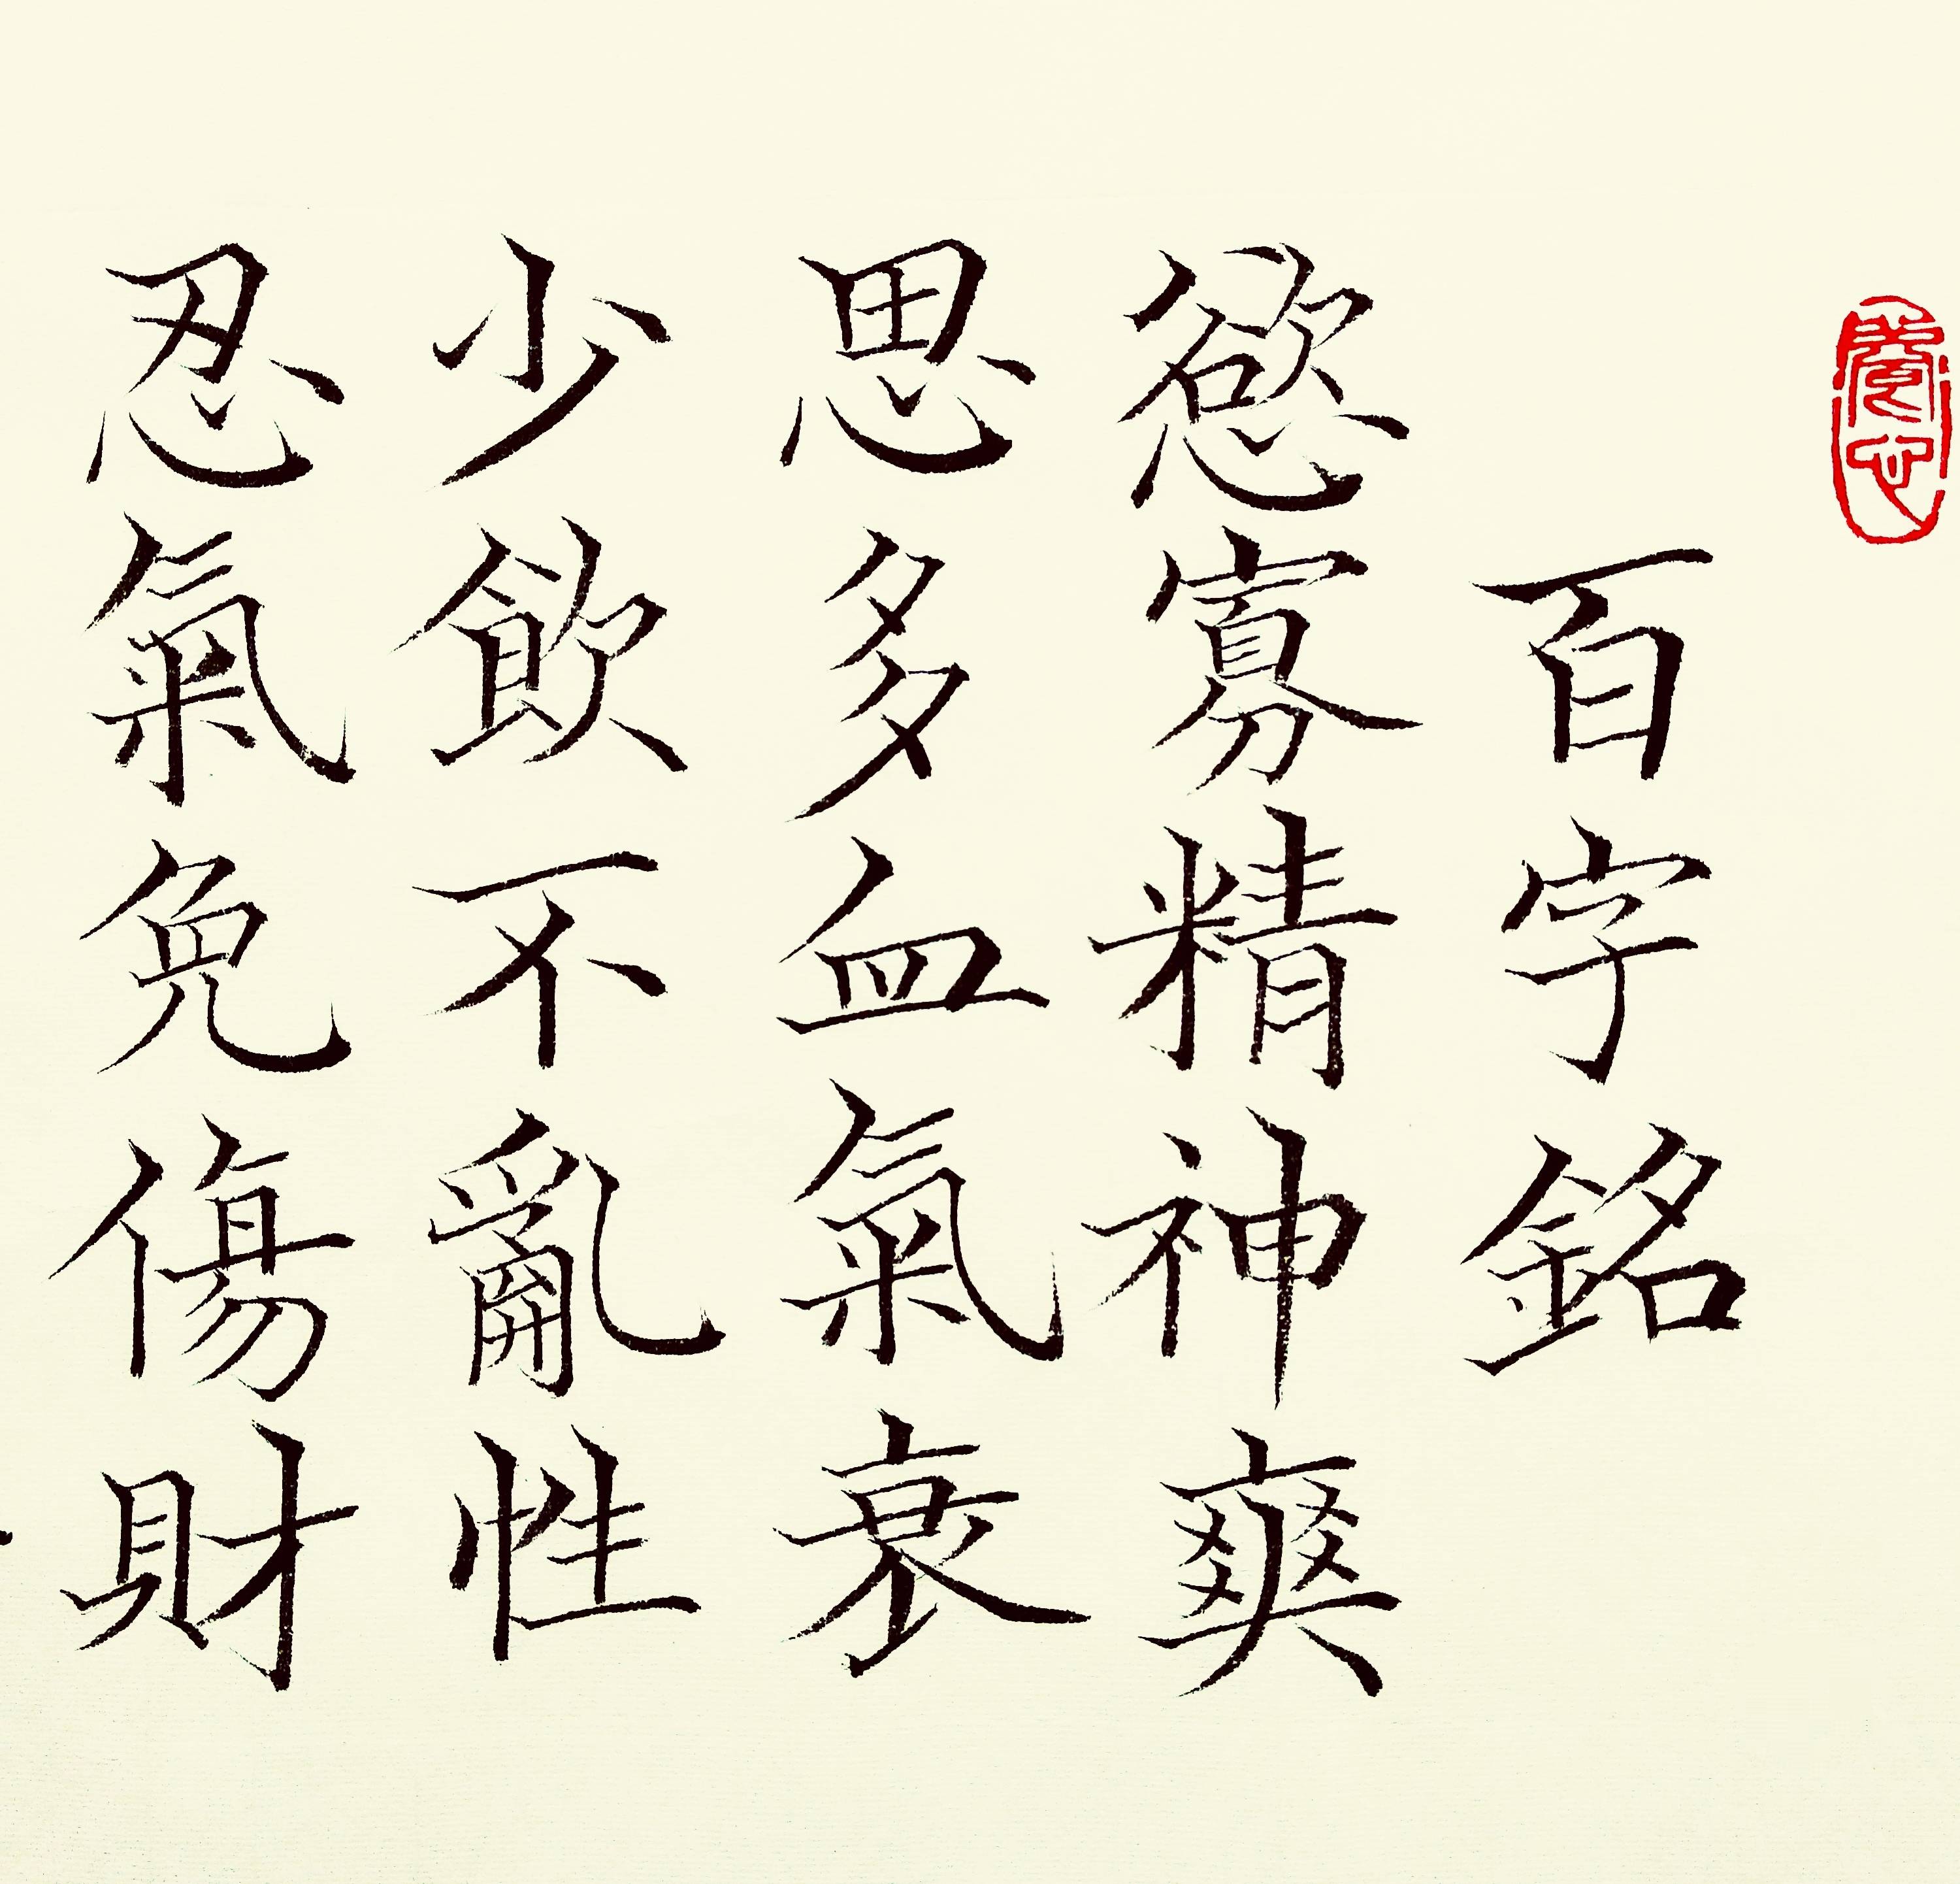 養心
百字銘
慾寡精神爽
思多血氣衰
少飲不亂性
忍氣免傷財